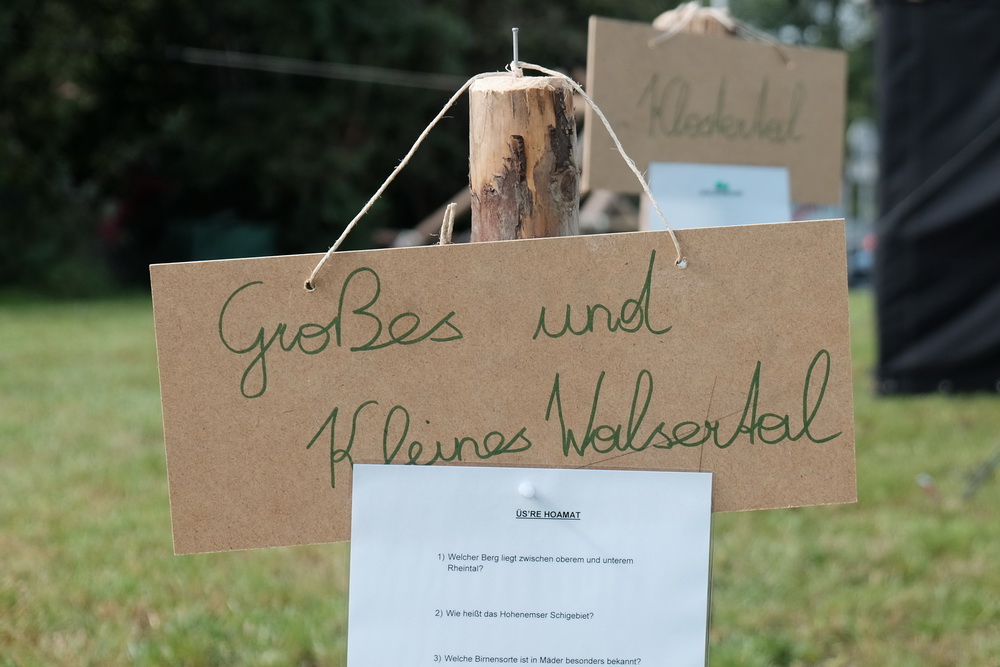 Klostertal
Großes und
Kleines Walsertal
ÜS'RE HOAMAT
1) Welcher Berg liegt zwischen oberem und unterem
Rheintal?
2) Wie heißt das Hohenemser Schigebiet?
3) Welche Birnensorte ist in Mäder besonders bekannt?